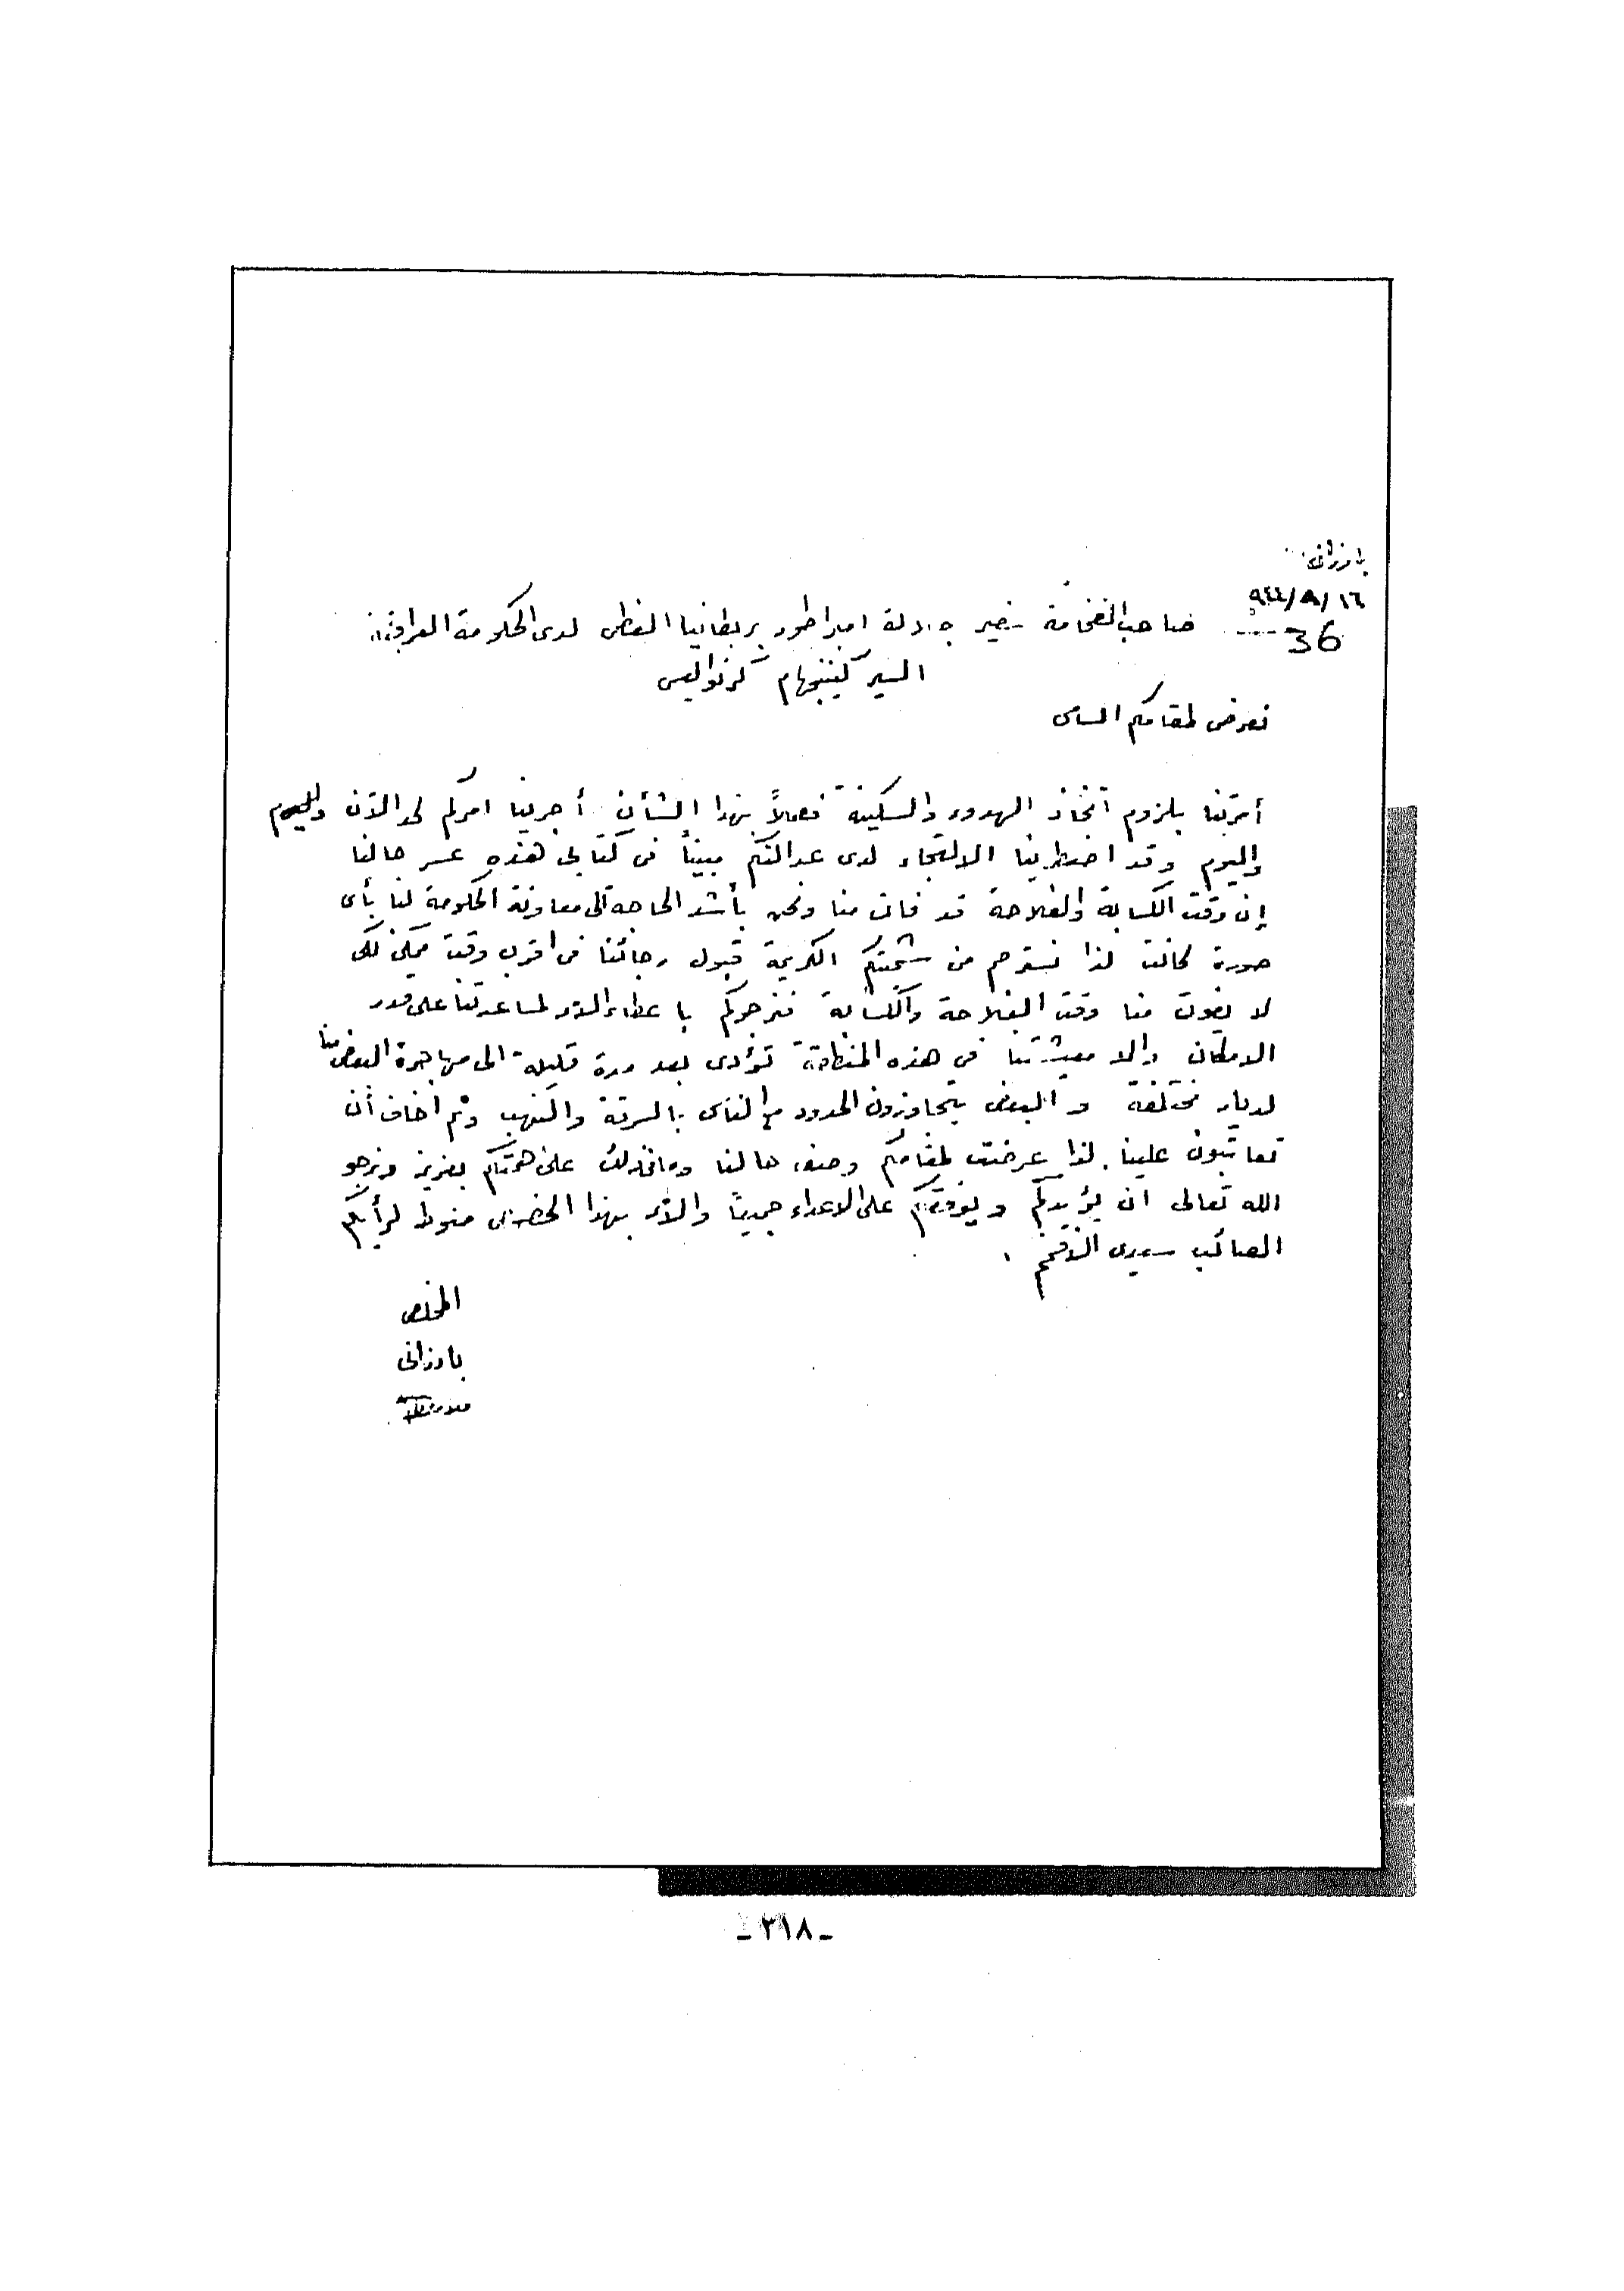 بارزاني
١٦/٨/٩٤٤
36
صاحب الفخامة سفير جلالة امبراطور بريطانيا العظمى لدى الحكومة العراقية
السير كينيهام كرنواليس
نعرض لمقامكم السامى
أمرتنا بلزوم اتخاذ الهدوء والسكينة فعملاً بهذا الشأن أجرينا امركم لحد الآن واليوم
واليوم وقد اضطرينا الالتجاء لدى عدالتكم مبيناً فى كتابى هذه عسر حالنا
إن وقت الكسابة والفلاحة قد فات منا ونحن بأشد الحاجة الى معاونة الحكومة لنا بأى
صورة كانت لذا نسترحم من شيمتكم الكريمة قبول رجائنا فى اقرب وقت ممكن لكى
لا يفوت منا وقت الفلاحة والكسابة فنرجوكم باعطاء الأمر لمساعدتنا على قدر
الامكان والا معيشتنا فى هذه المنطقة تؤدى بعد مدة قليلة الى مهاجرة البعض منا
لديار مختلفة والبعض يتجاوزون الحدود مع الناس بالسرقة والنهب ثم اخاف أن
تعاتبون علينا. لذا عرضت لمقامكم وصف حالنا وما ذلك على همتكم بعزيز ونرجو
الله تعالى ان يؤيدكم ويوفقكم على الاعداء جميعاً والأمر بهذا الخصوص منوط لرأيكم
الصائب سيدى الأفخم .
المخلص
بارزانى
ـ٢١٨ـ